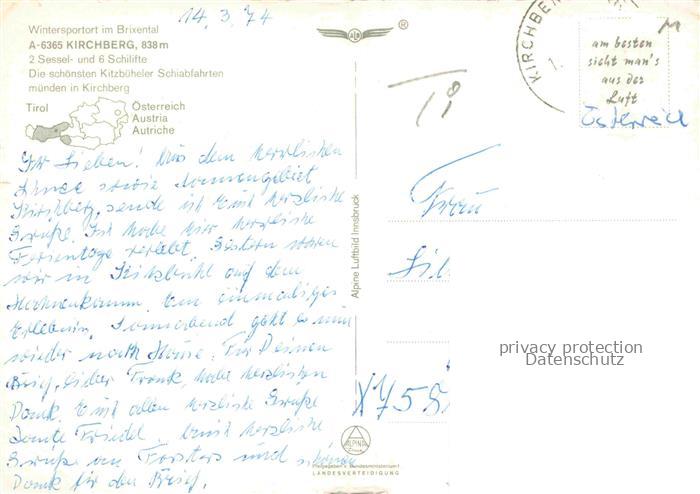 14.3.74
Wintersportort im Brixental
A-6365 KIRCHBERG, 838 m
2 Sessel- und 6 Schilifte
Die schönsten Kitzbüheler Schiabfahrten
münden in Kirchberg
Tirol
Österreich
Austria
Autriche
Ihr Lieben! Aus dem herrlichen
Schnee sowie Sonnengebiet
Kirchberg, sende ich Euch herzliche
Grüße. Ich habe hier herrliche
Ferientage verlebt. Gestern waren
wir in Kitzbühel auf dem
Hahnenkamm. Ein einmaliges
Erlebnis. Sonnabend geht es nun
wieder nach Hause. Für Deinen
Brief, lieber Frank, habe herzlichen
Dank. Euch allen herzliche Grüße
Tante Friedel. Auch herzliche
Grüße von Forsters und schönen
Dank für den Brief.
Alpine Luftbild Innsbruck
®
KIRCHBE
1.
am besten
sieht man's
aus der
Luft
Österreich
Frau
X 75
privacy protection
Datenschutz
ALPINE
Freigegeben v. Bundesministerium f.
LANDESVERTEIDIGUNG